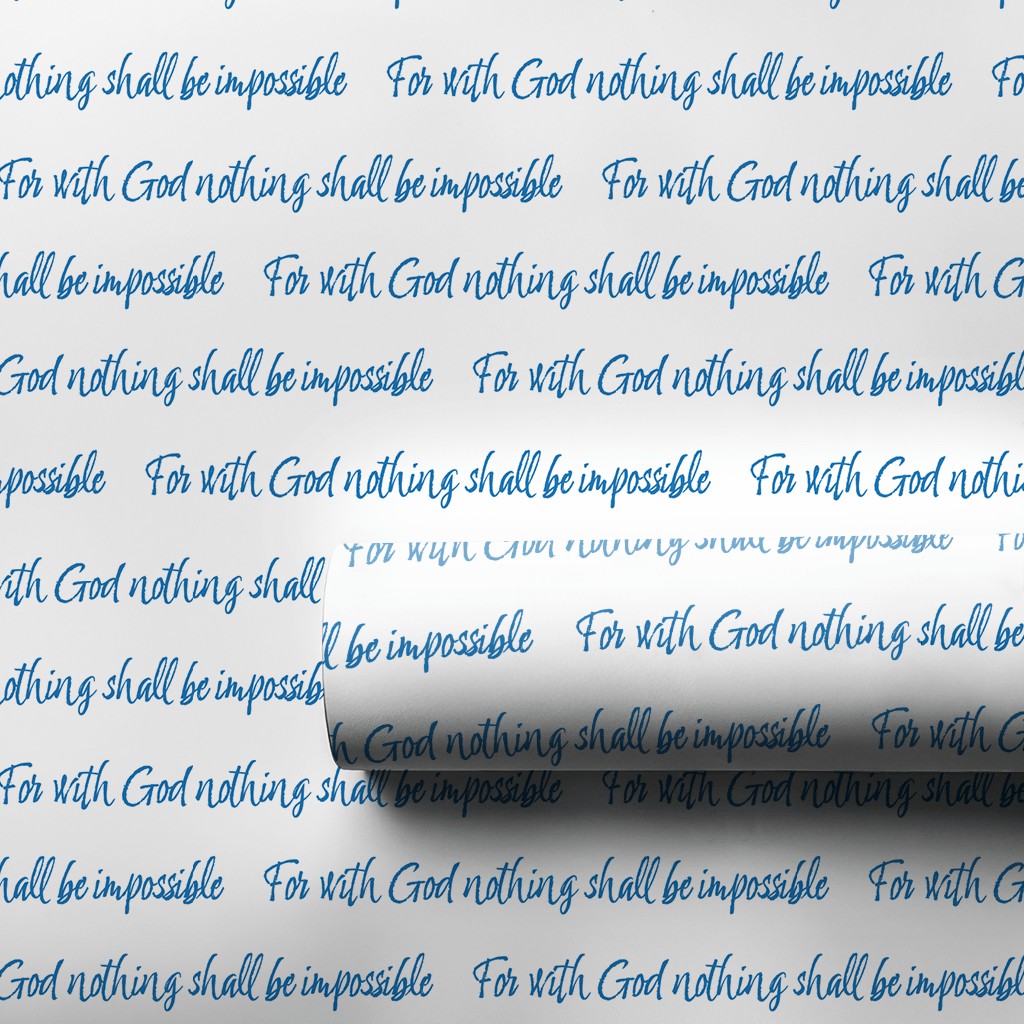 nothing shall be impossible For with God nothing shall be impossible
For with God nothing shall be impossible For with God nothing shall be
shall be impossible For with God nothing shall be impossible For with
God nothing shall be impossible For with God nothing shall be impossible
For with God nothing shall be impossible For with God
For with God nothing shall be impossible
with God nothing shall
be impossible For with God nothing shall be
nothing shall be
God nothing shall be impossible For with
For with God nothing shall be impossible For with God nothing shall be
shall be impossible For with God nothing shall be impossible For with
God nothing shall be impossible For with God nothing shall be impossible